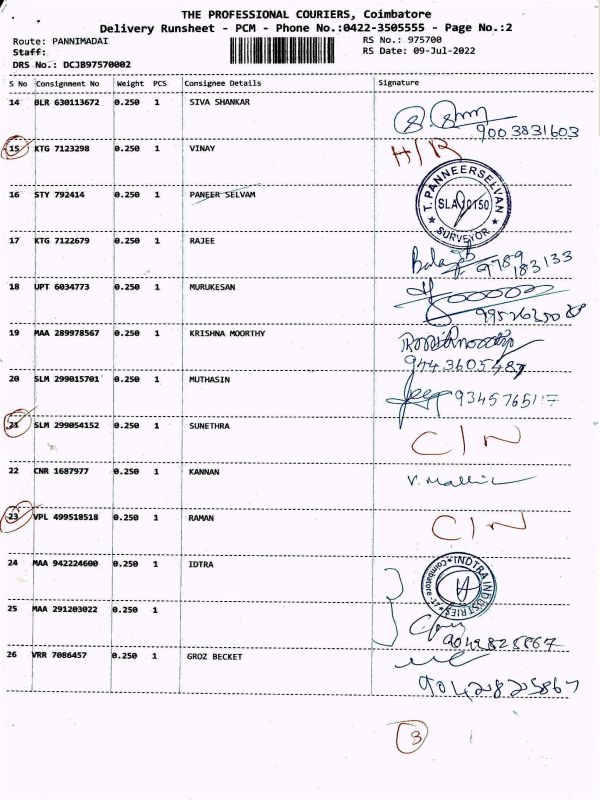 THE PROFESSIONAL COURIERS, Coimbatore
Delivery Runsheet - PCM - Phone No.:0422-3505555 - Page No.:2
Route: PANNIMADAI
RS No.: 975700
Staff:
RS Date: 09-Jul-2022
DRS No.: DCJB97570002
S No Consignment No Weight PCS Consignee Details Signature
14 BLR 630113672 0.250 1 SIVA SHANKAR
9003831603
15 KTG 7123298 0.250 1 VINAY H/R
16 STY 792414 0.250 1 PANEER SELVAM
T. PANNEERSELVAN
SURVEYOR
17 KTG 7122679 0.250 1 RAJEE
9789
183133
18 UPT 6034773 0.250 1 MURUKESAN
19 MAA 289978567 0.250 1 KRISHNA MOORTHY
20 SLM 299015701 0.250 1 MUTHASIN
21 SLM 299054152 0.250 1 SUNETHRA C/N
22 CNR 1687977 0.250 1 KANNAN
23 VPL 499518518 0.250 1 RAMAN C/N
24 MAA 942224600 0.250 1 IDTRA
INDTRA INDUSTRIES
25 MAA 291203022 0.250 1
26 VRR 7086457 0.250 1 GROZ BECKET
9042825867
3